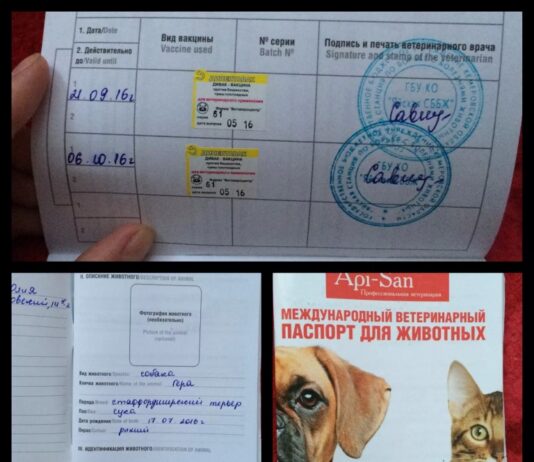 1. Дата/Date
Вид вакцины
Vaccine used
№ серии
Batch №
Подпись и печать ветеринарного врача
Signature and stamp of the veterinarian
2. Действительно
до/Valid until
1
21.09.16г
ДИВАК - ВАКЦИНА
для ветеринарного применения
серия 61
дата выпуска 05 16
ГБУ КО
2
1
06.10.16г
ДИВАК - ВАКЦИНА
для ветеринарного применения
серия 61
05 16
ГБУ КО
2
II. ОПИСАНИЕ ЖИВОТНОГО/DESCRIPTION OF ANIMAL
Фотография животного
(необязательно)
Picture of the animal
(optional)
Вид животного/Species собака
Кличка животного/Name of the animal Гера
Порода/Breed стаффордширский терьер
Пол/Sex сука
Дата рождения/Date of birth 17.07.2016г
Окрас/Colour рыжий
III. ИДЕНТИФИКАЦИЯ ЖИВОТНОГО/IDENTIFICATION OF ANIMAL
Api-San
Профессиональная ветеринария
МЕЖДУНАРОДНЫЙ ВЕТЕРИНАРНЫЙ
ПАСПОРТ ДЛЯ ЖИВОТНЫХ